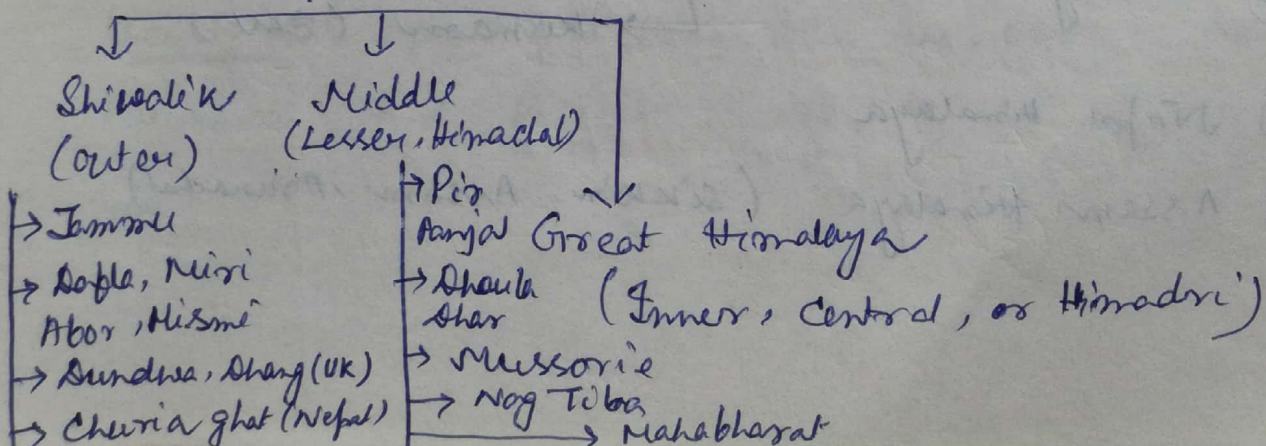 Shiwalik
(outer)
→ Jammu
→ Dafla, Miri
Abor, Mismi
→ Dundwa, Dhang (UK)
→ Churia ghat (Nepal)
Middle
(Lesser, Himachal)
→ Pir
Panjal
→ Dhaula
Dhar
→ Mussorie
→ Nag Tiba
→ Mahabharat
Great Himalaya
(Inner, Central, or Himadri)